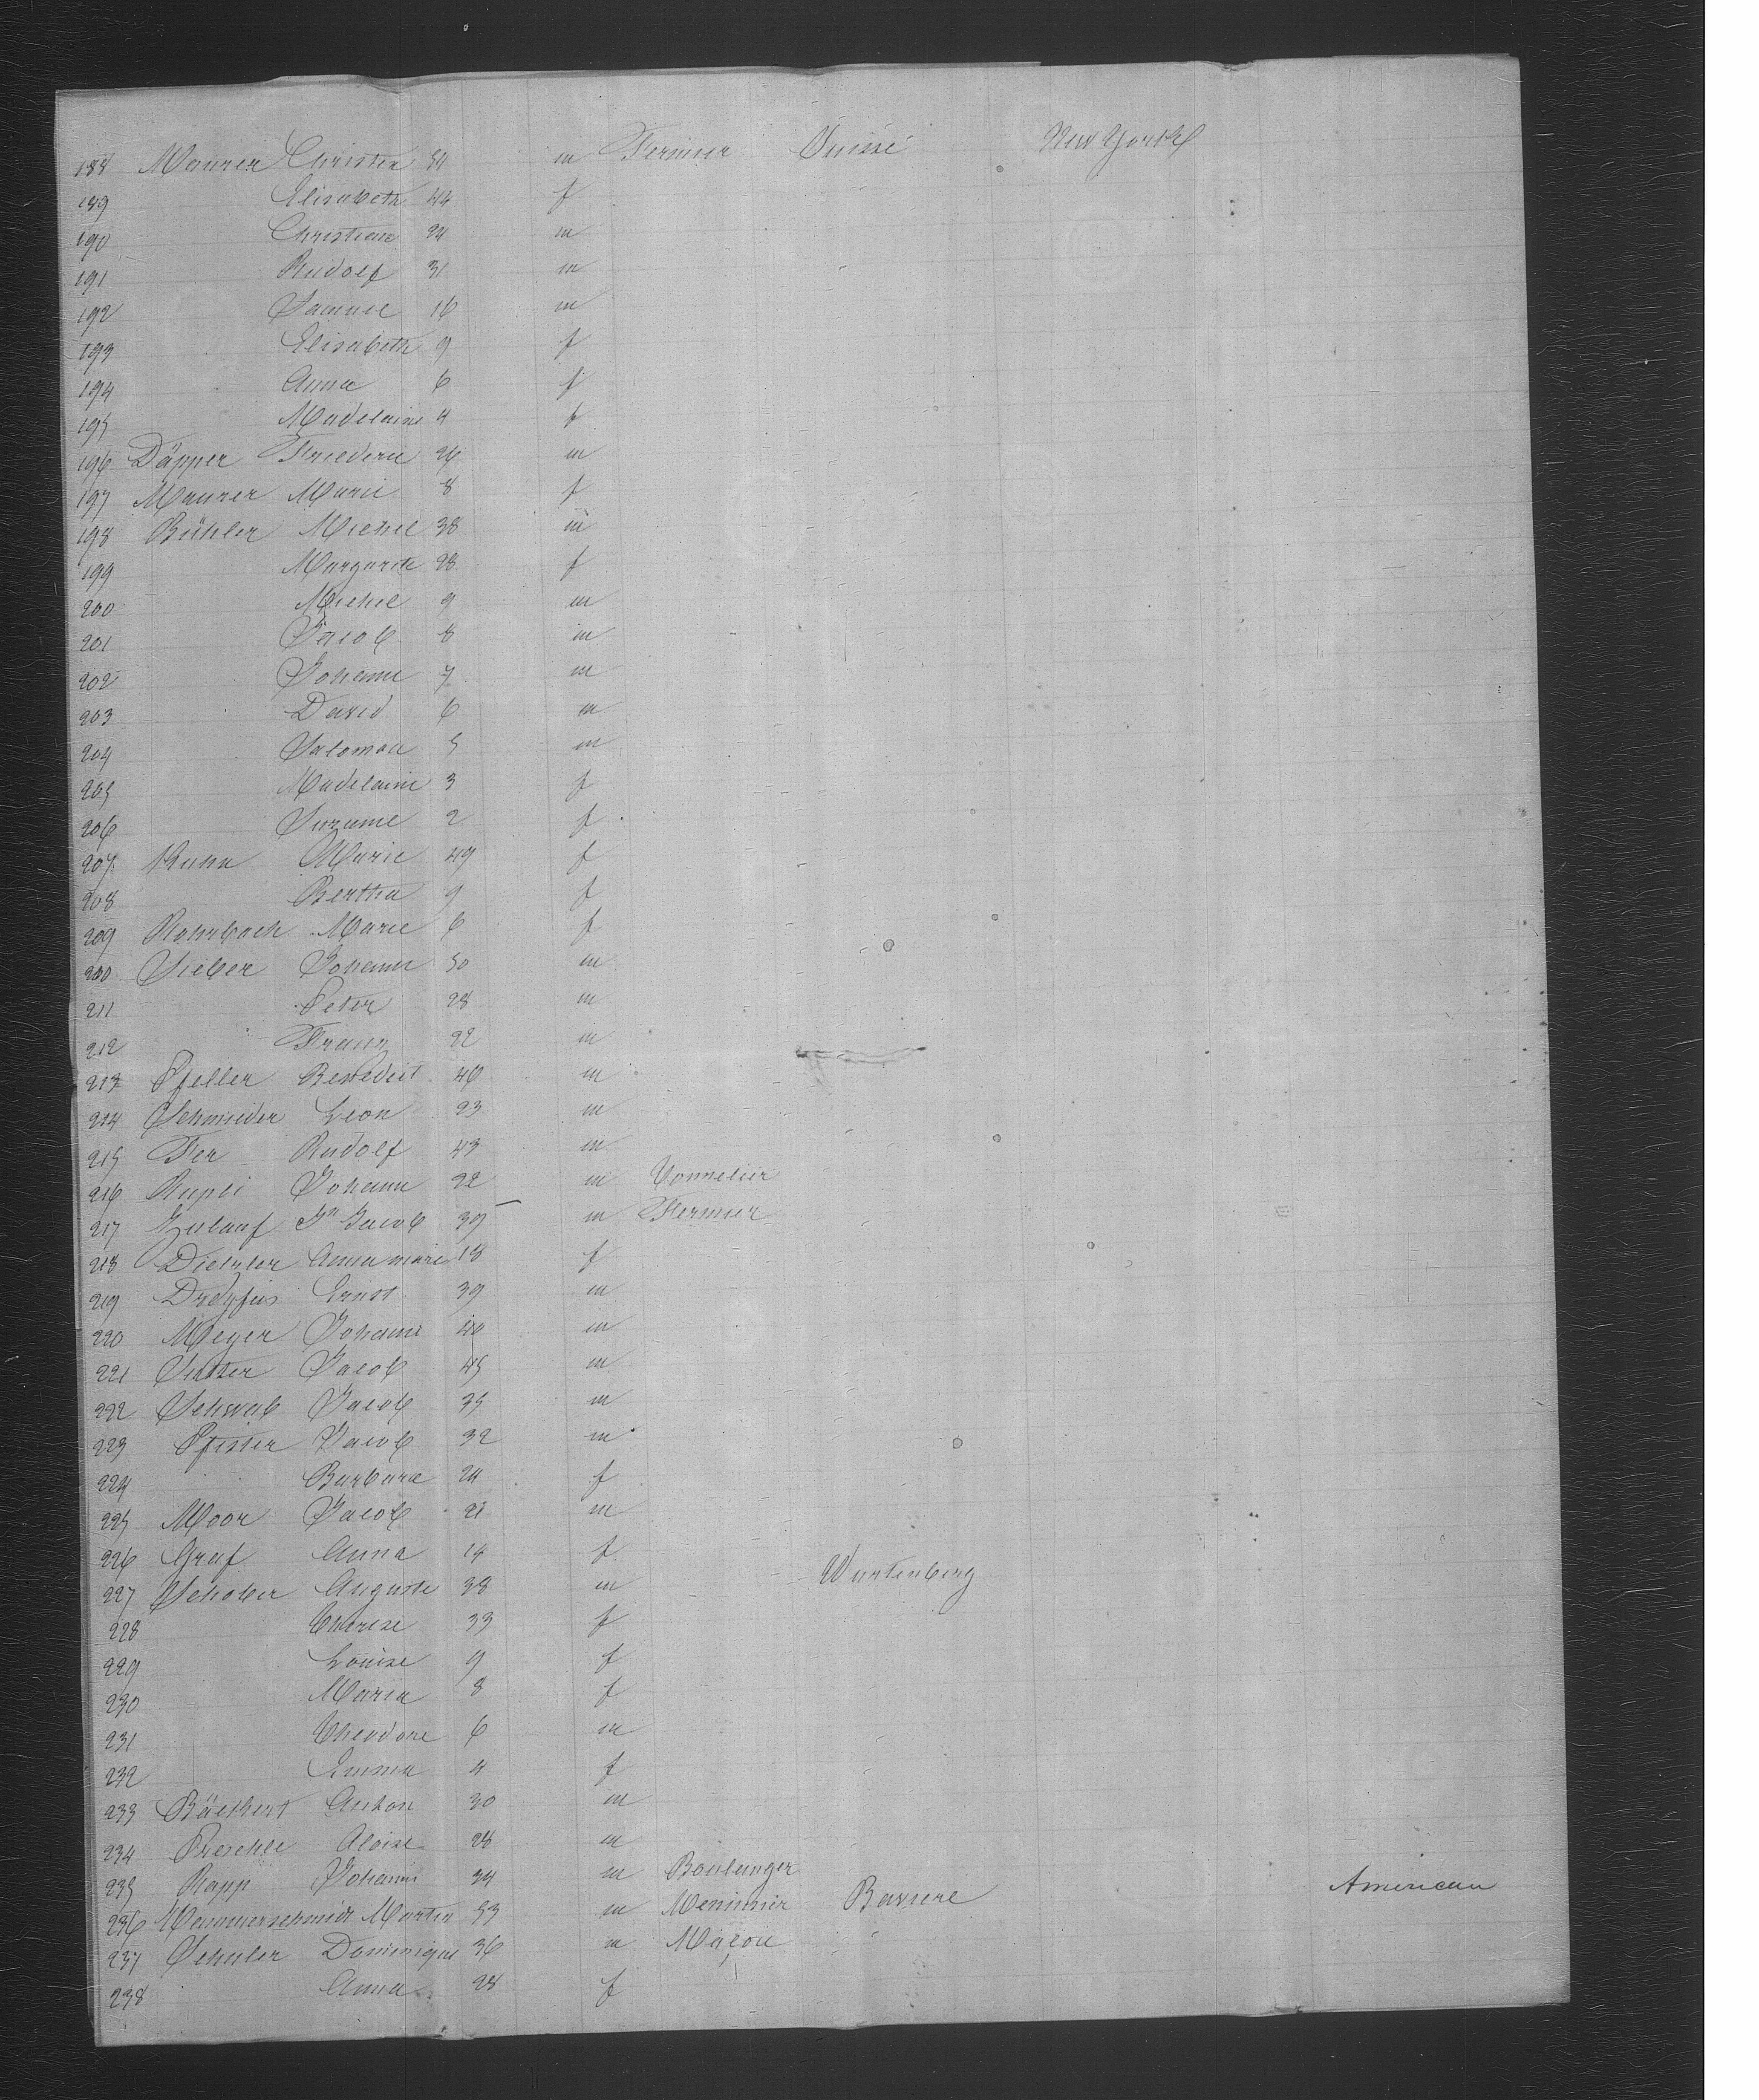 188 Maurer Christen 54 m Fermier Suisse New York
189 Elisabeth 44 f
190 Christian 24 m
191 Rudolf 31 m
192 Samuel 16 m
193 Elisabeth 9 f
194 Anna 6 f
195 Madelaine 4 f
196 Däpper 26 m
197 Maurer Marie 8 f
198 Bühler Michel 38 m
199 Margarite 28 f
200 Michel 9 m
201 Jacob 8 m
202 Johann 7 m
203 David 6 m
204 Salomon 5 m
205 Madelaine 3 f
206 Suzanne 2 f
207 Kuhn Marie 49 f
208 Bertha 9 f
209 Rohrbach Marie 6 f
210 Sieber Johann 50 m
211 Peter 28 m
212 Franz 22 m
213 Pfeller Benedict 46 m
214 Schmieder Leon 23 m
215 Fer Rudolf 43 m
216 Rupli Johann 22 m Tonnelier
217 Zulauf Jn Jacob 39 m Fermier
218 Dietzler Anna marie 18 f
219 Dreyfus Ernst 39 m
220 Meyer Johann 40 m
221 Sutter Jacob 45 m
222 Schwab Jacob 35 m
223 Pfister Jacob 32 m
224 Barbara 24 f
225 Moor Jacob 21 m
226 Graf Anna 14 f
227 Schober Auguste 38 m Wurtenberg
228 Therese 33 f
229 Louise 9 f
230 Maria 8 f
231 Theodore 6 m
232 Emma 4 f
233 Bäechert Anton 30 m
234 Preschle Aloise 28 m
235 Rapp Johann 34 m Boulanger
236 Hammerschmidt Martin 53 m Menuisier Baviere American
237 Schuler Dominique 36 m Maçon
238 Anna 28 f